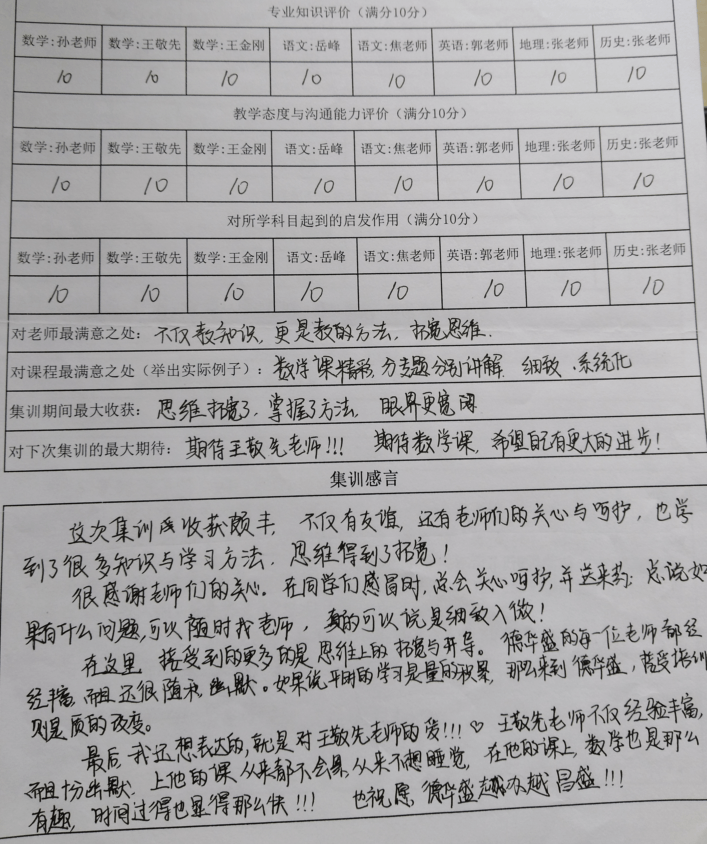 专业知识评价（满分10分）
数学:孙老师 数学:王敬先 数学:王金刚 语文:岳峰 语文:焦老师 英语:郭老师 地理:张老师 历史:张老师
10 10 10 10 10 10 10 10
教学态度与沟通能力评价（满分10分）
数学:孙老师 数学:王敬先 数学:王金刚 语文:岳峰 语文:焦老师 英语:郭老师 地理:张老师 历史:张老师
10 10 10 10 10 10 10 10
对所学科目起到的启发作用（满分10分）
数学:孙老师 数学:王敬先 数学:王金刚 语文:岳峰 语文:焦老师 英语:郭老师 地理:张老师 历史:张老师
10 10 10 10 10 10 10 10
对老师最满意之处：不仅教知识，更是教的方法，拓宽思维.
对课程最满意之处（举出实际例子）：数学课精彩,分专题分别讲解 细致、系统化
集训期间最大收获：思维拓宽了，掌握了方法， 眼界更宽阔
对下次集训的最大期待：期待王敬先老师!!! 期待数学课，希望自己有更大的进步!
集训感言
这次集训收获颇丰， 不仅有友谊，还有老师们的关心与呵护，也学
到了很多知识与学习方法. 思维得到了拓宽!
很感谢老师们的关心. 在同学们感冒时,总会关心呵护,并送来药; 总说如
果有什么问题,可以随时找老师，真的可以说是细致入微!
在这里 接受到的更多的是思维上的拓宽与开导。德华盛的每一位老师都经
经丰富,而且还很随和,幽默。如果说平时的学习是量的积累，那么来到德华盛,接受培训
则是质的改变。
最后,我还想表达的,就是对王敬先老师的爱!!!♡ 王敬先老师不仅经验丰富,
而且十分幽默. 上他的课从来都不会累,从来不想睡觉，在他的课上,数学也是那么
有趣，时间过得也显得那么快!!! 也祝愿,德华盛越办越昌盛!!!